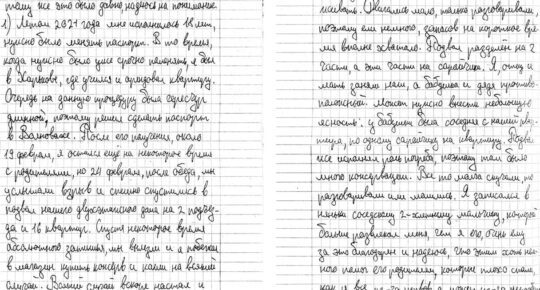 тому же это было давно надвое на понимание.
1) Летом 2021 года мне исполнилось 18 лет,
нужно было менять паспорт. В то время,
когда нужно было уже срочно поменять, я был
в Харькове, где учился и арендовал квартиру.
Очередь на данную процедуру была чересчур
длинной, поэтому решил сделать паспорт
в Волновахе. После его получения, около
19 февраля, я остался ещё на некоторое время
с родителями, но 24 февраля, после обеда, мы
услышали взрыв и спешно спустились в
подвал нашего двухэтажного дома на 2 подъез-
да и 16 квартир. Спустя некоторое время
абсолютного затишья, мы вышли и я побежал
в магазин купить консерв и каши на всякий
случай. Всякий случай вскоре настал и
мало, только разговаривали,
поэтому ей немного, запасов на короткое вре-
мя вполне хватало. Подвал разделён на 2
части, а эти части на сарайчики. Я, отец и
мать заняли наш, а бабушка и дядя противо-
положный. Может нужно внести небольшую
ясность: у бабушки была соседняя с нашей квар-
тира, по одному сарайчику на квартиру. Подвал
же исполнял роль погреба, поэтому там было
много консервации. Все то мама слушали, то
разговаривали или молились. Я записался в
няньки соседскому 2-хлетнему мальчику, который
больше развлекал меня, чем я его, очень ему
за это благодарен и надеюсь, что этим хоть нем-
ного помог его родителям, которые тоже спали,